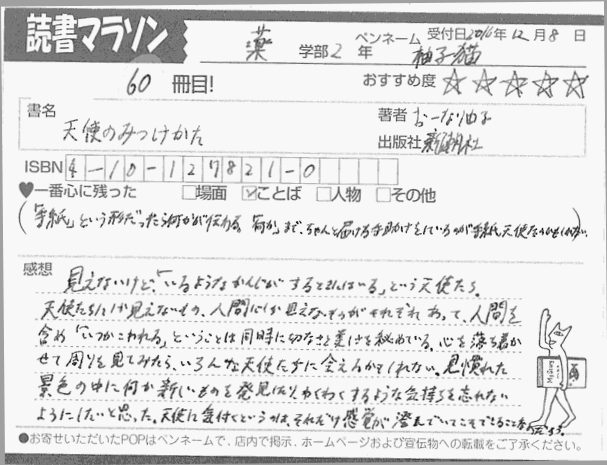 読書マラソン
薬 学部 2 年
ペンネーム 柚子猫
受付日2016年12月8日
60 冊目!
おすすめ度 ☆☆☆☆☆
書名
天使のみつけかた
著者 おーなり由子
出版社 新潮社
ISBN 4-10-127821-0
♥一番心に残った □場面 ☑ことば □人物 □その他
(「手紙」という形だったら何かが伝わる。「何か」まで、ちゃんと届ける手助けをしているのが手紙天使なのかもしれない。
感想
見えないけど、「いるようなかんじがするときにはいる」という天使たち。
天使たちにしか見えないもの、人間にしか見えないものがそれぞれあって、人間を
含め「いつかこわれる」ということは同時に切なさと美しさを秘めている。心を落ち着か
せて周りを見てみたら、いろんな天使たちに会えるかもしれない。見慣れた
景色の中に何か新しいものを発見したりわくわくするような気持ちを忘れない
ようにしたいと思った。天使に気付くというのは、それだけ感覚が澄んでいてこそできることなのだろう。
●お寄せいただいたPOPはペンネームで、店内で掲示、ホームページおよび宣伝物への転載をご了承ください。